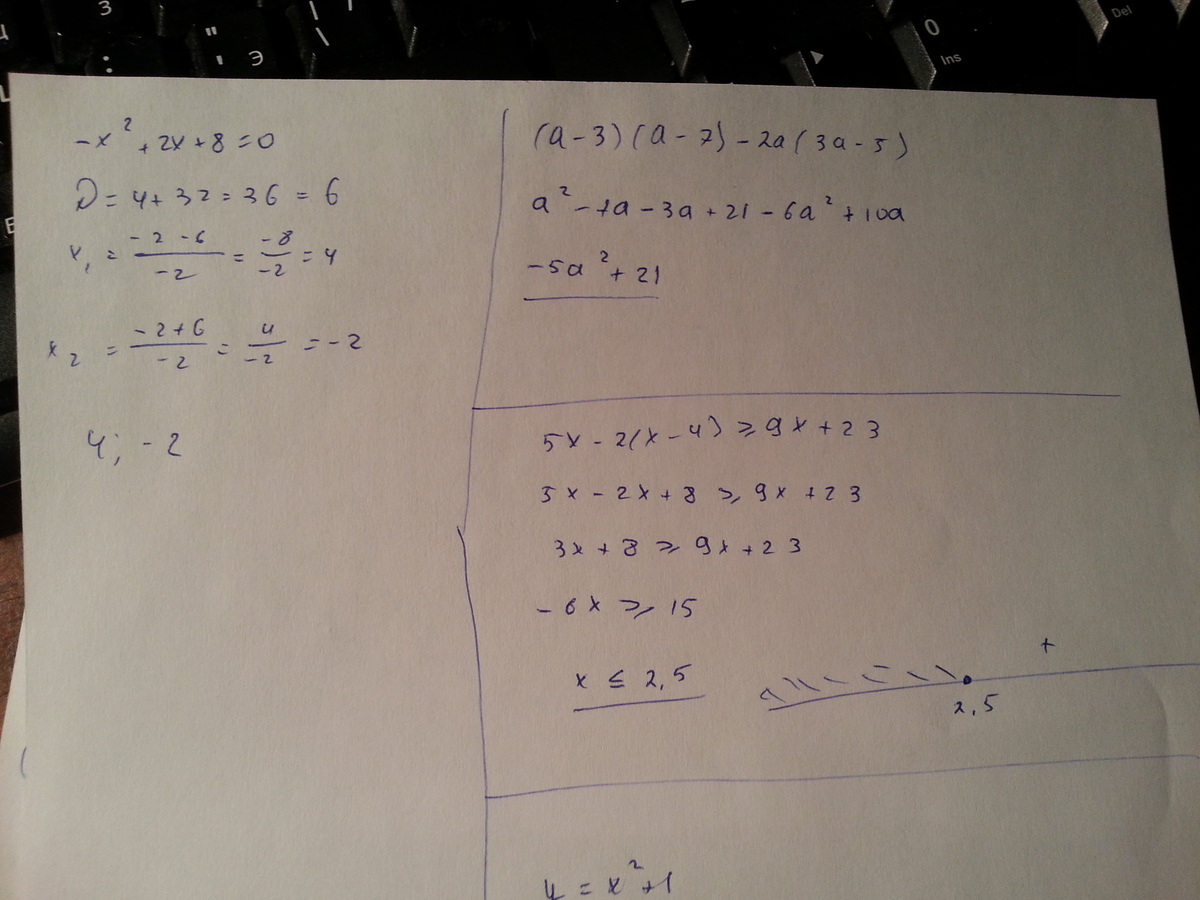 З
"
' Э
:
\
0
Ins
Del
-x² + 2x + 8 = 0
D = 4 + 32 = 36 = 6
x₁ = (-2 - 6)/(-2) = (-8)/(-2) = 4
x₂ = (-2 + 6)/(-2) = 4/(-2) = -2
4; -2
(a - 3)(a - 7) - 2a(3a - 5)
a² - 7a - 3a + 21 - 6a² + 10a
-5a² + 21
5x - 2(x - 4) ≥ 9x + 23
5x - 2x + 8 ≥ 9x + 23
3x + 8 ≥ 9x + 23
-6x ≥ 15
x ≤ 2,5
+
2,5
y = x² + 1